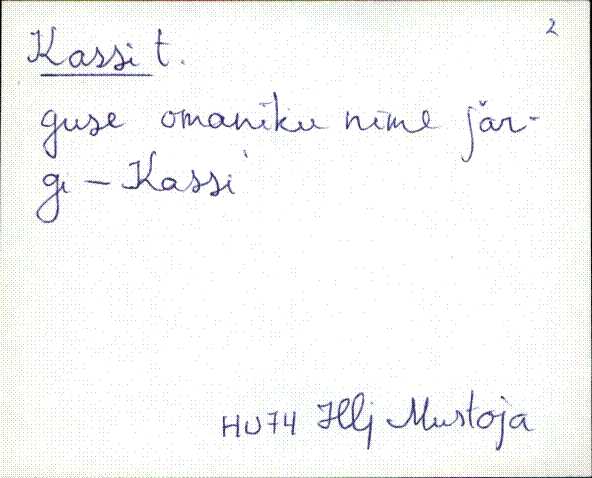 2
Kassi t.
guse omaniku nime jär-
gi – Kassi
HU74 Hlj Mustoja